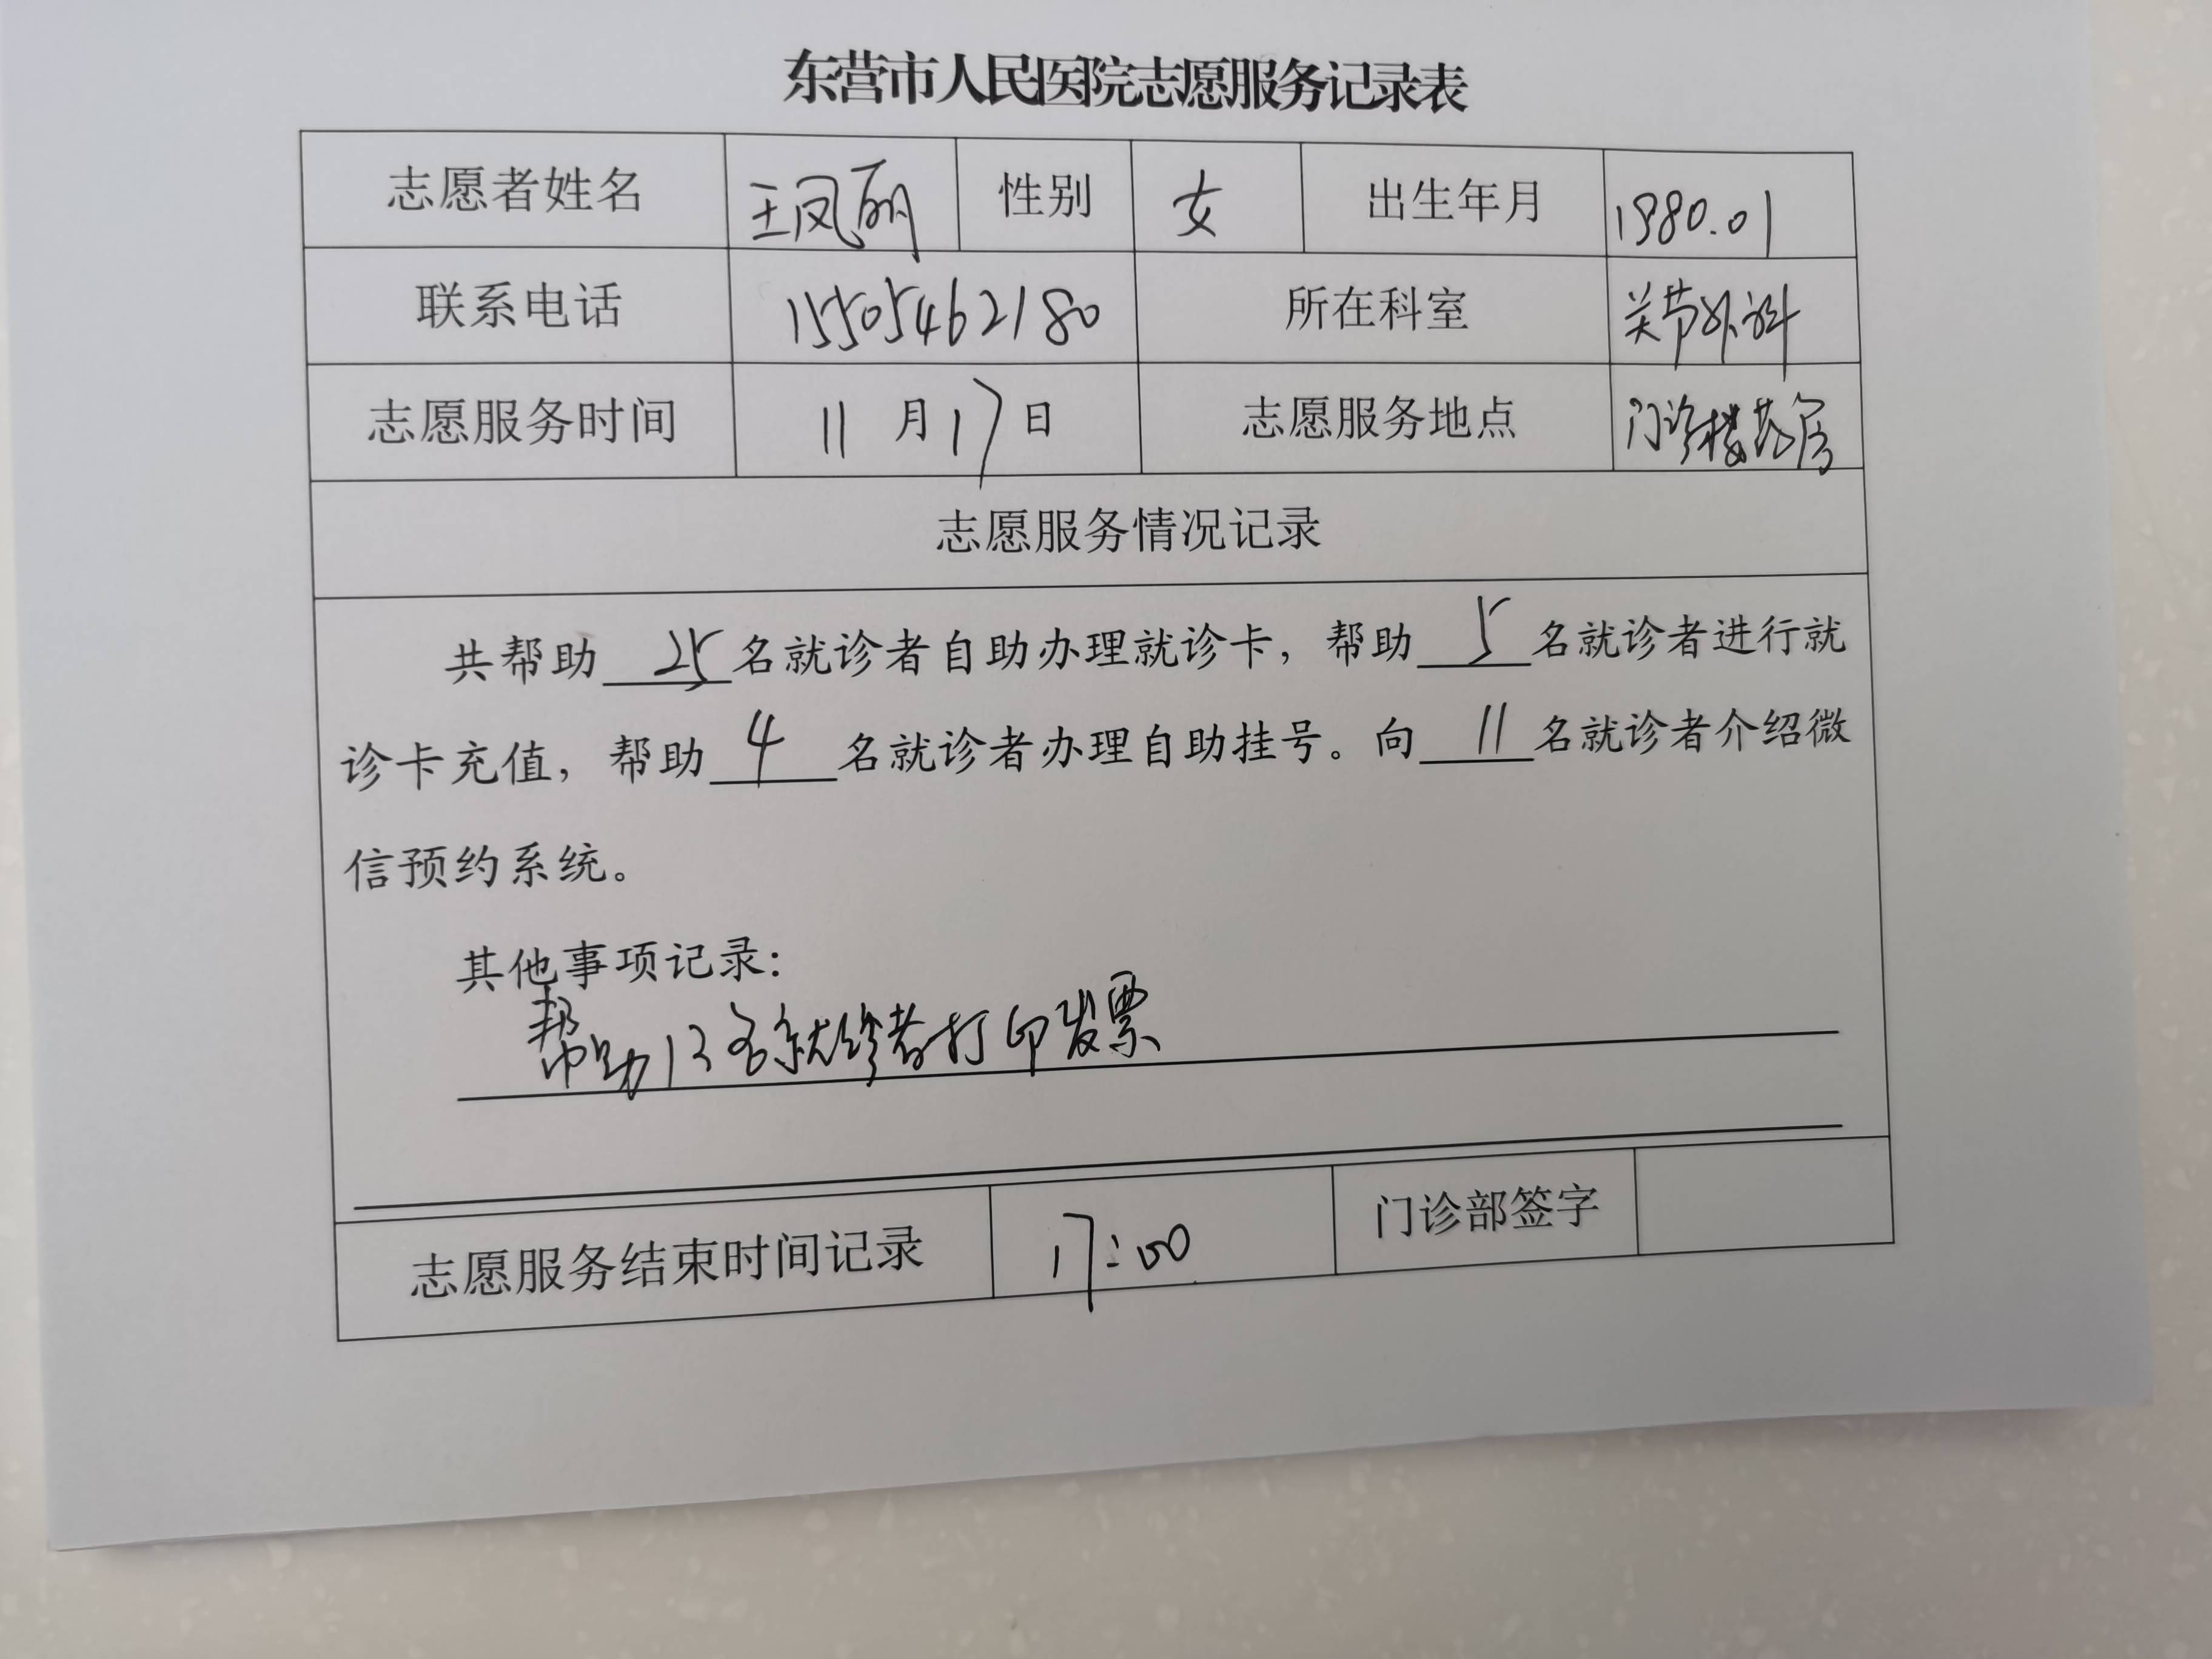 东营市人民医院志愿服务记录表
志愿者姓名 王凤丽 性别 女 出生年月 1980.01
联系电话 15505462180 所在科室 关节外科
志愿服务时间 11月17日 志愿服务地点 门诊楼药房
志愿服务情况记录
共帮助25名就诊者自助办理就诊卡，帮助5名就诊者进行就
诊卡充值，帮助4名就诊者办理自助挂号。向11名就诊者介绍微
信预约系统。
其他事项记录：
帮助13名就诊者打印发票
志愿服务结束时间记录 17:00 门诊部签字